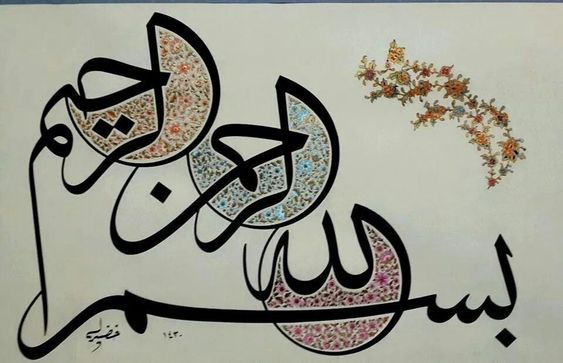 بسم الله
الرحمن
الرحيم
١٤٣٠